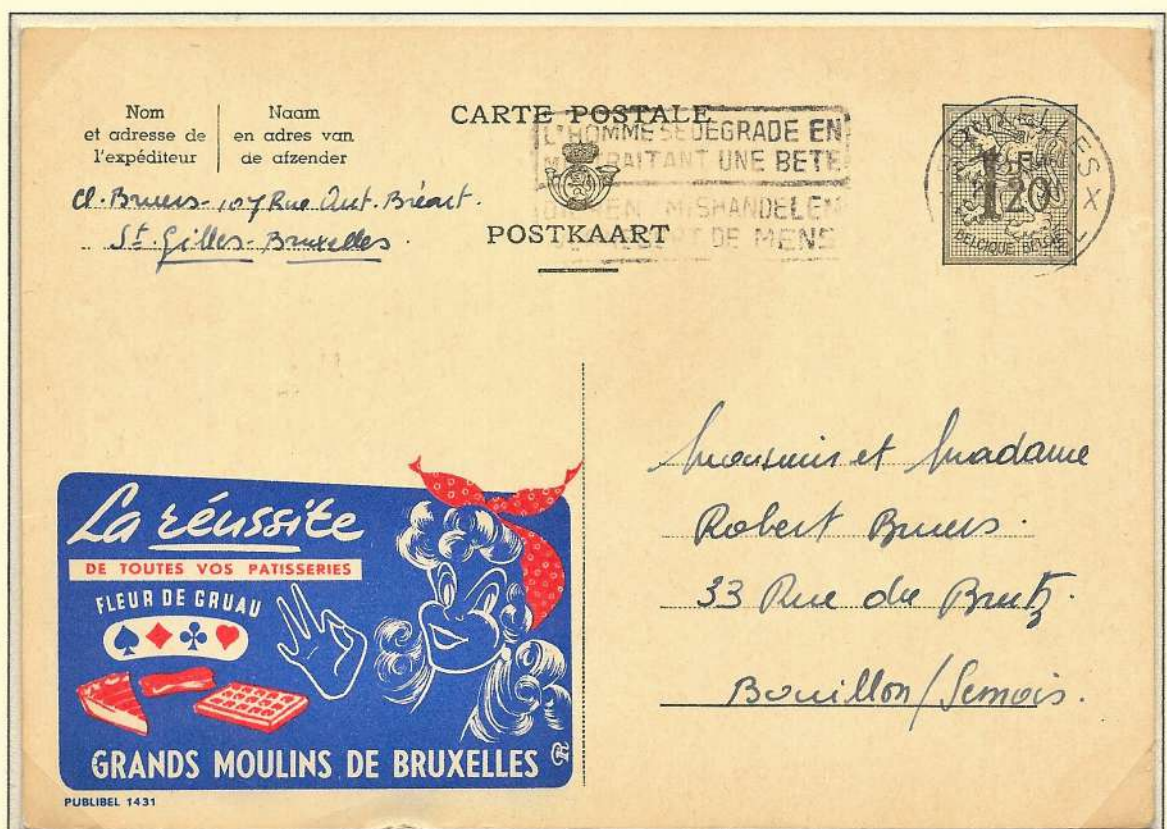 Nom
et adresse de
l'expéditeur
Naam
en adres van
de afzender
CARTE POSTALE
L'HOMME SE DEGRADE EN
MALTRAITANT UNE BETE
DIEREN MISHANDELEN
DE MENS
POSTKAART
BRUXELLES X
1F20
BELGIQUE BELGIE
Cl. Bruers - 107 Rue Ant. Bréart.
St. Gilles - Bruxelles.
Monsieur et Madame
Robert Bruers.
33 Rue du
Bouillon/Semois.
La réussite
DE TOUTES VOS PATISSERIES
FLEUR DE GRUAU
GRANDS MOULINS DE BRUXELLES
PUBLIBEL 1431